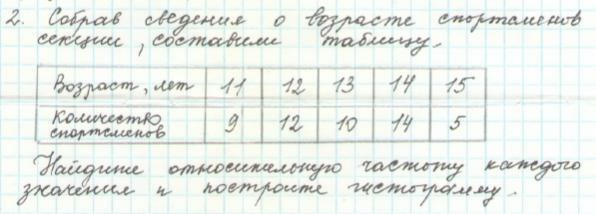 2. Собрав сведения о возрасте спортсменов
секции, составили таблицу.
Возраст, лет 11 12 13 14 15
Количество
спортсменов 9 12 10 14 5
Найдите относительную частоту каждого
значения и постройте гистограмму.